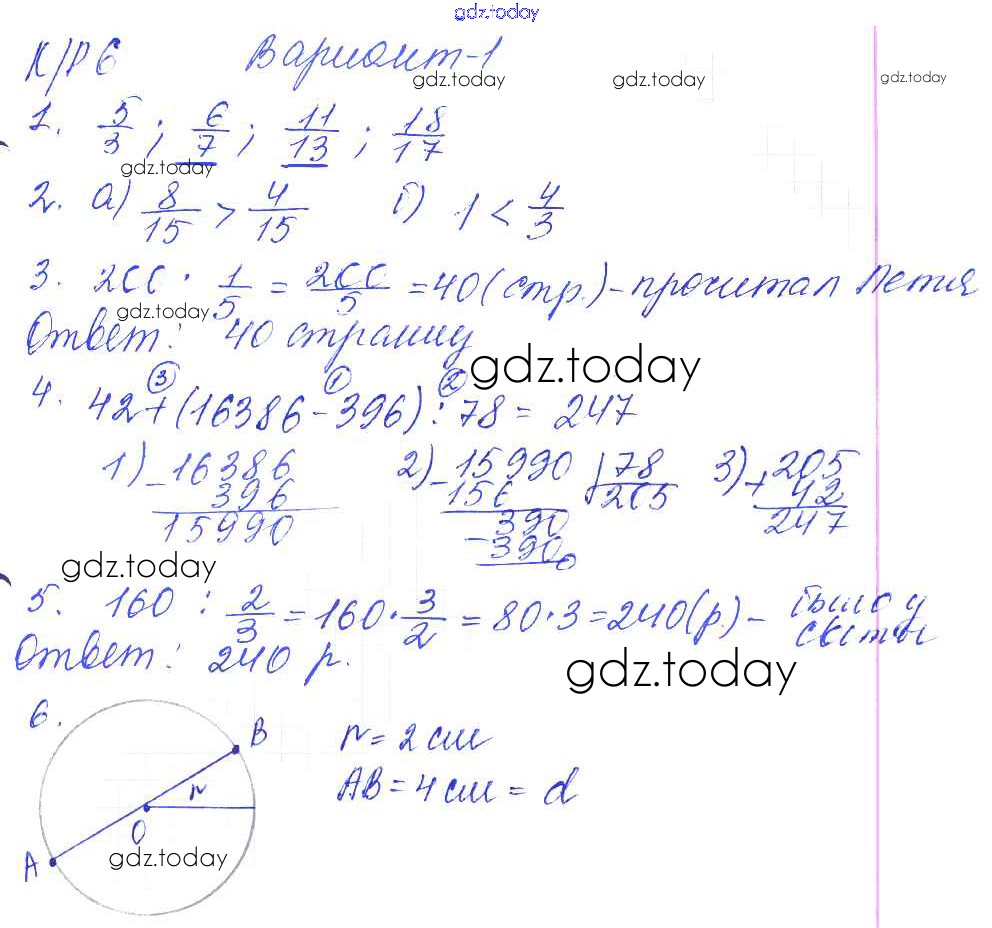 gdz.today
К/Р 6 Вариант-1
gdz.today gdz.today gdz.today
1. 5/3 ; 6/7 ; 11/13 ; 18/17
gdz.today
2. а) 8/15 > 4/15 б) 1 < 4/3
3. 200 · 1/5 = 200/5 = 40 (стр.) - прочитал Петя
gdz.today
Ответ: 40 страниц
gdz.today
4. 42 + (16386 - 396) : 78 = 247
③ ① ②
1) - 16386 2) - 15990 | 78 3) + 205
396 156 205 42
15990 390 247
- 390
0
gdz.today
5. 160 : 2/3 = 160 · 3/2 = 80 · 3 = 240 (р.) - было у
Светы
Ответ: 240 р.
gdz.today
6.
B r = 2 см
r AB = 4 см = d
O
A gdz.today